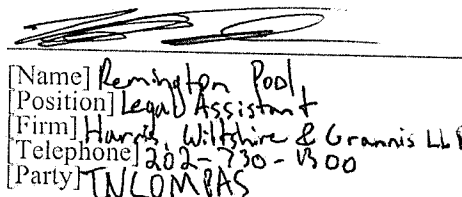 [Name] Remington Pool
[Position] Legal Assistant
[Firm] Harris, Wiltshire & Grannis LLP
[Telephone] 202-730-1300
[Party] TNCOMPAS